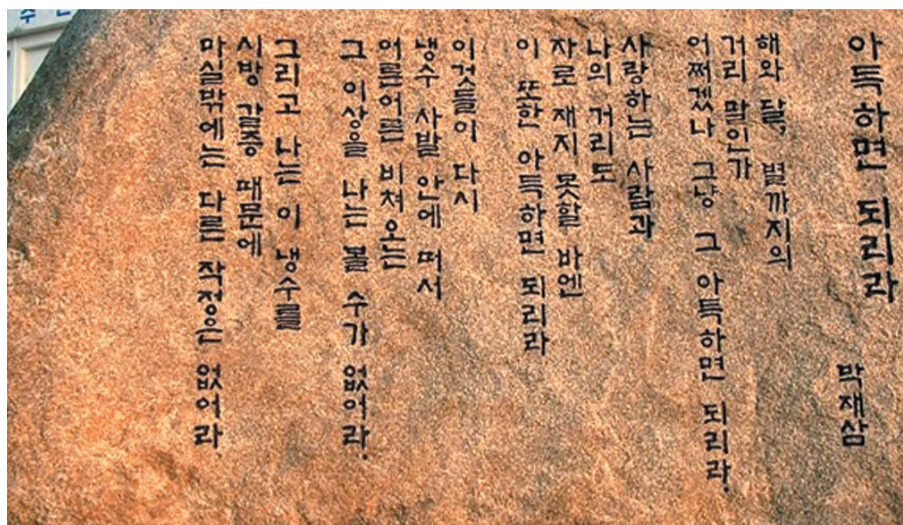 아득하면 되리라
박재삼
해와 달, 별까지의
거리 말인가
어쩌겠나 그냥 그 아득하면 되리라.
사랑하는 사람과
나의 거리도
자로 재지 못할 바엔
이 또한 아득하면 되리라
이것들이 다시
냉수 사발 안에 떠서
어른어른 비쳐오는
그 이상을 나는 볼 수가 없어라.
그리고 나는 이 냉수를
시방 갈증 때문에
마실밖에는 다른 작정은 없어라.